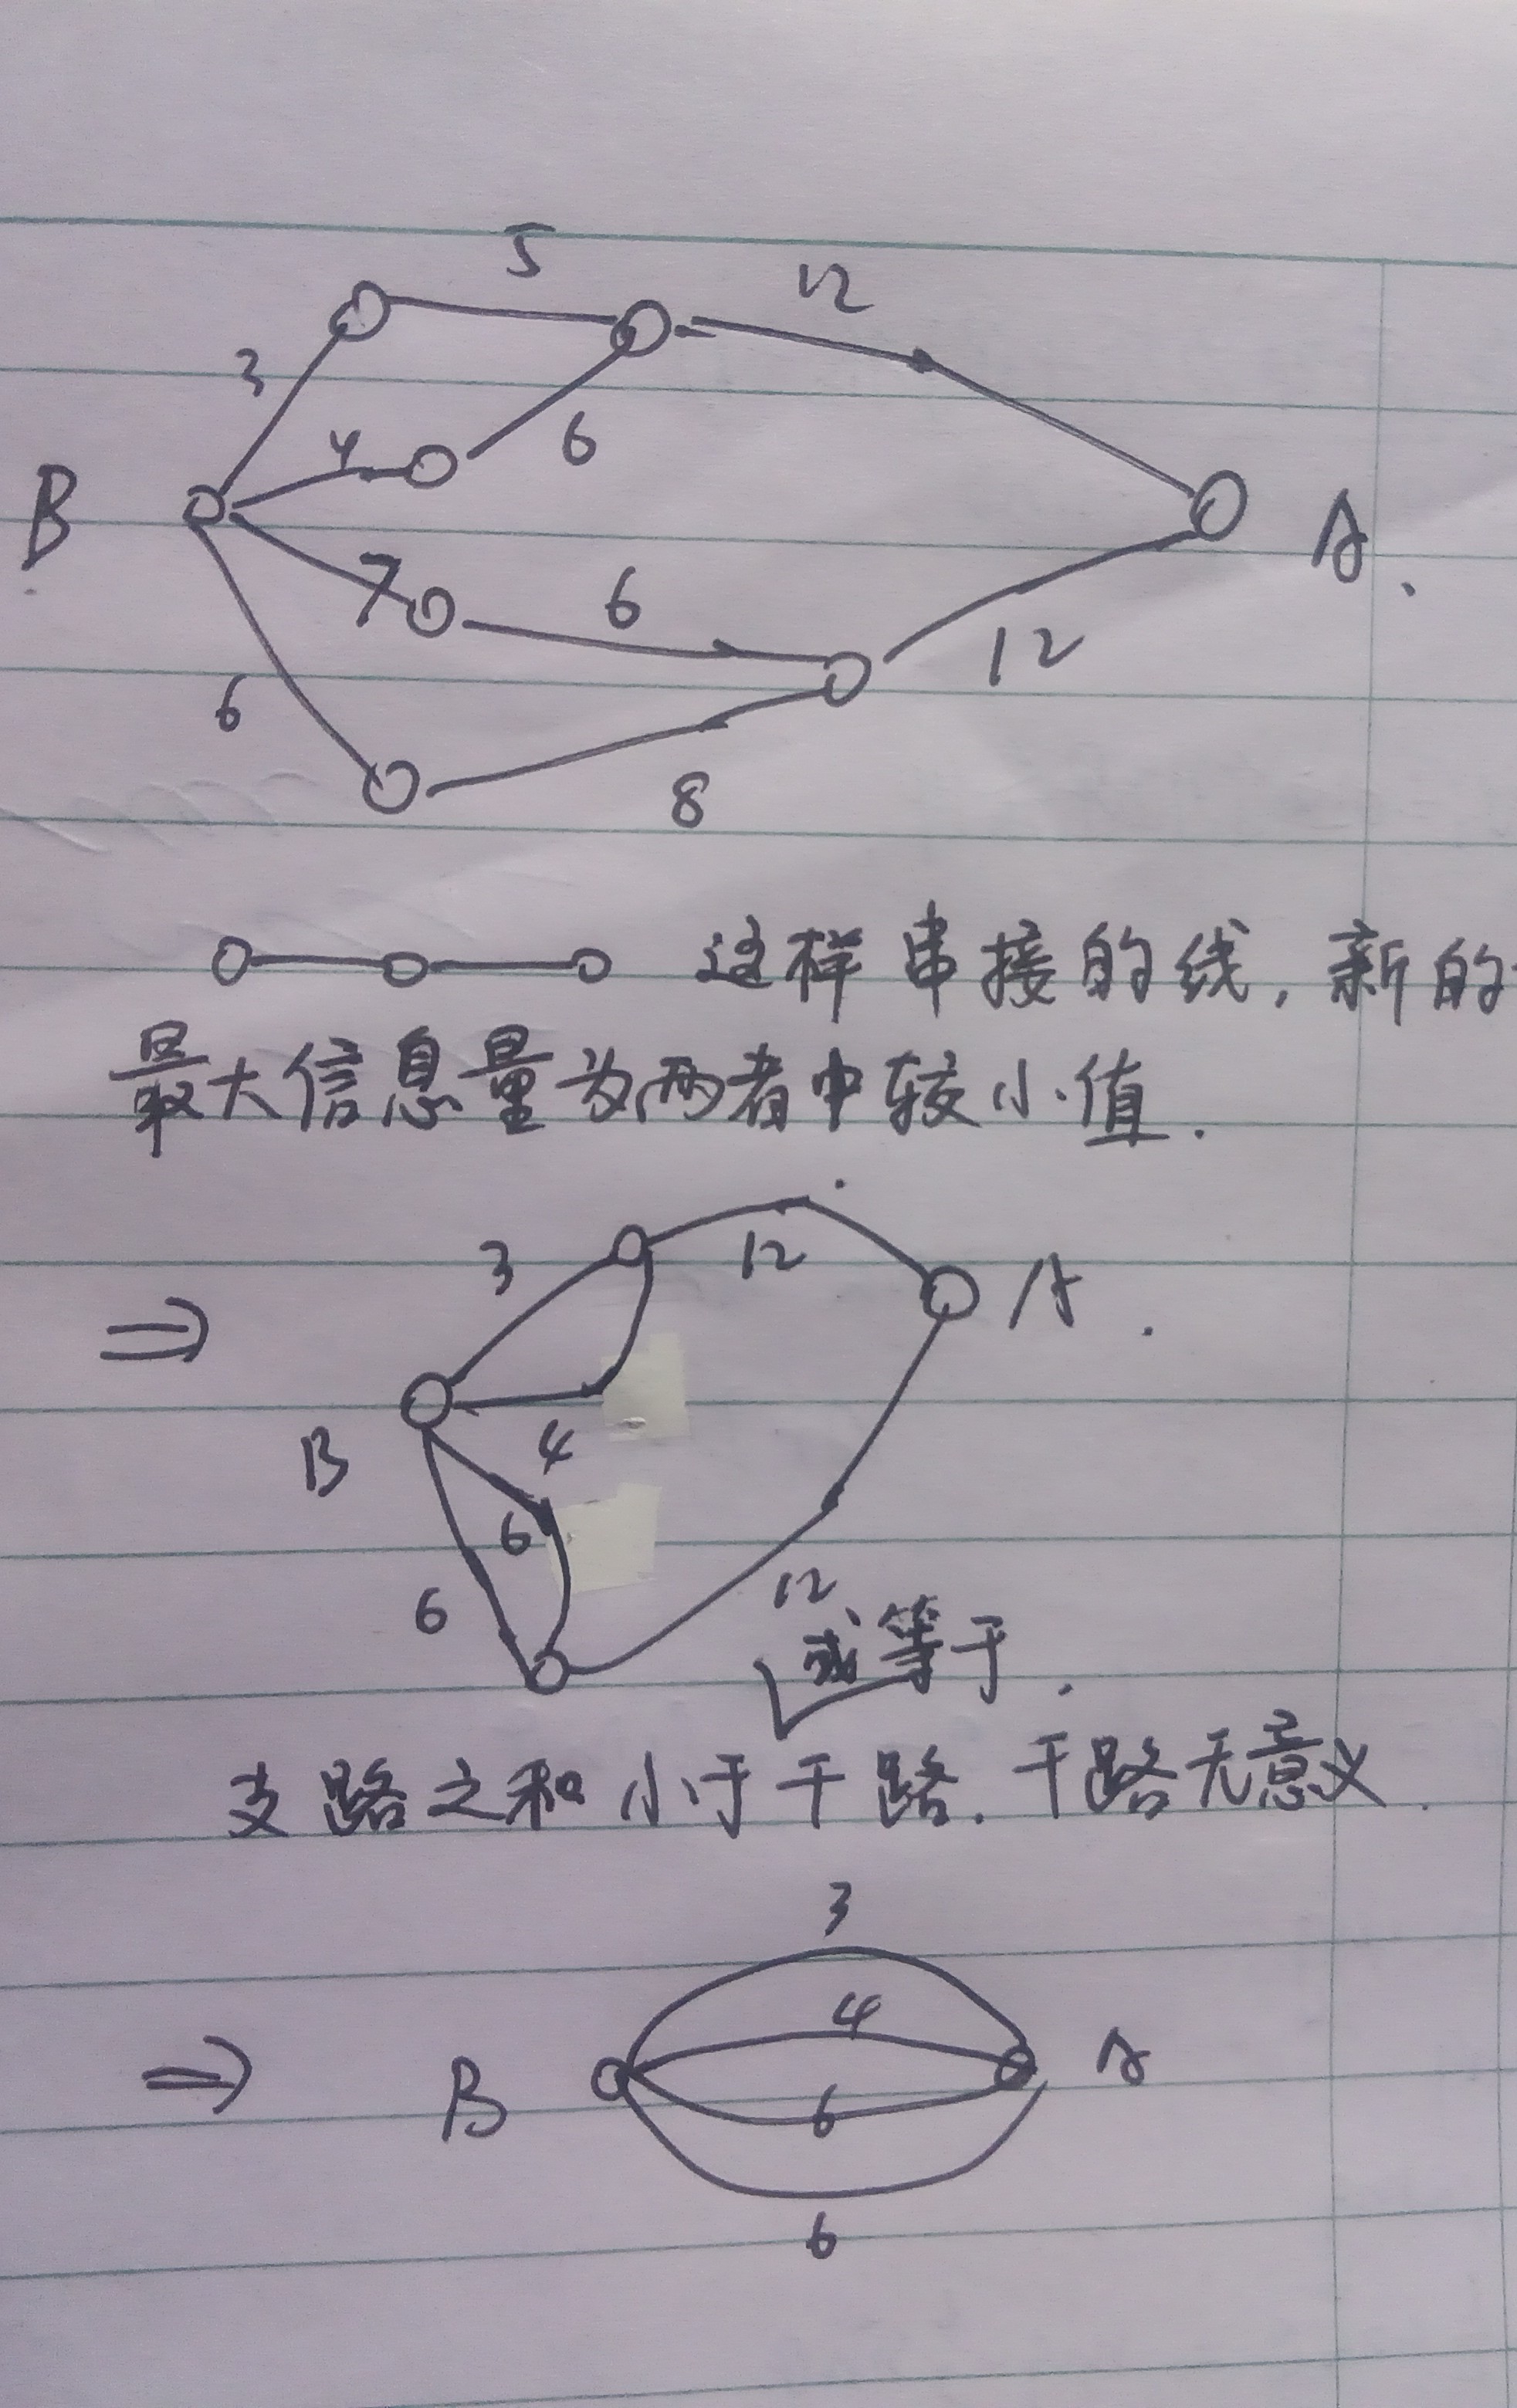 5
12
3
4
6
B
A.
7
6
12
6
8
这样串接的线,新的
最大信息量为两者中较小值.
3
12
⇒
A.
B
4
6
6
12
或等于.
支路之和小于干路.干路无意义.
3
4
⇒ B
A
6
6